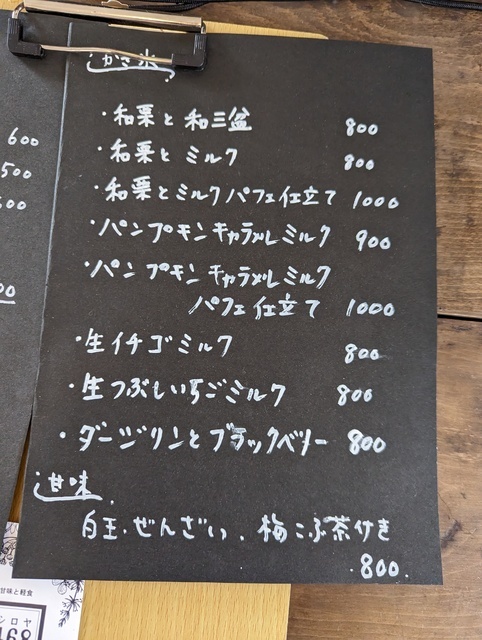 かき氷
・和栗と和三盆 800
・和栗とミルク 800
・和栗とミルクパフェ仕立て 1000
・パンプキンキャラメルミルク 900
・パンプキンキャラメルミルク
パフェ仕立て 1000
・生イチゴミルク 800
・生つぶしいちごミルク 800
・ダージリンとブラックベリー 800
甘味
白玉ぜんざい、梅こぶ茶付き
800
600
500
甘味と軽食
シロヤ